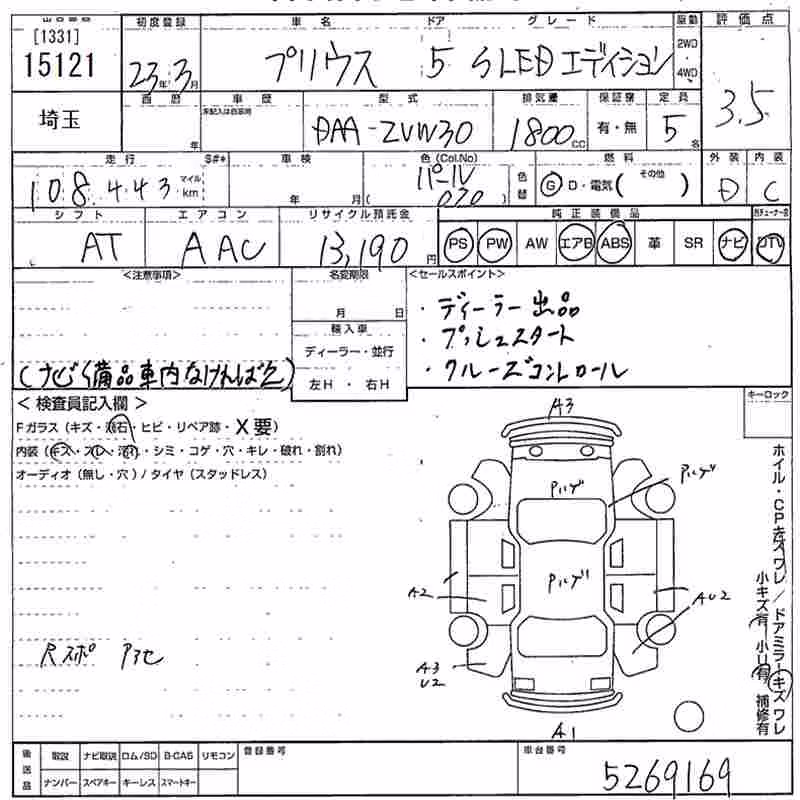 [1331]
15121
初度登録
23年3月
車名
プリウス
ドア
5
グレード
SLEDエディション
駆動
2WD
・
4WD
評価点
3.5
埼玉
西暦
年
車歴
未記入は自家用
型式
DAA-ZVW30
排気量
1800cc
保証書
有・無
定員
5名
走行
108,443
マイル
km
S#*
車検
年 月
色(Col.No)
パール
( 070 )
色替
燃料
G D・電気( その他 )
外装
D
内装
C
シフト
AT
エアコン
AAC
リサイクル預託金
13,190円
純正装備品
PS PW AW エアB ABS 革 SR ナビ
<注意事項>
(ナビ備品車内なければ欠)
名変期限
月 日
輸入車
ディーラー・並行
左H ・ 右H
<セールスポイント>
・ディーラー出品
・プッシュスタート
・クルーズコントロール
< 検査員記入欄 >
Fガラス(キズ・飛石・ヒビ・リペア跡・X要)
内装(キズ・スレ・汚れ・シミ・コゲ・穴・キレ・破れ・割れ)
オーディオ(無し・穴)/タイヤ(スタッドレス)
Rスポ Pヌセ
キーロック
ホイル・CPキズワレ/ドアミラーキズワレ
小キズ有 小U有 補修有
A3
Pハゲ
Pハゲ
Pハゲ
A2
AU2
A3
U2
A1
後送品
取説 ナビ取説 ロム/SD B-CAS リモコン
ナンバー スペアキー キーレス スマートキー
登録番号
車台番号
5269169